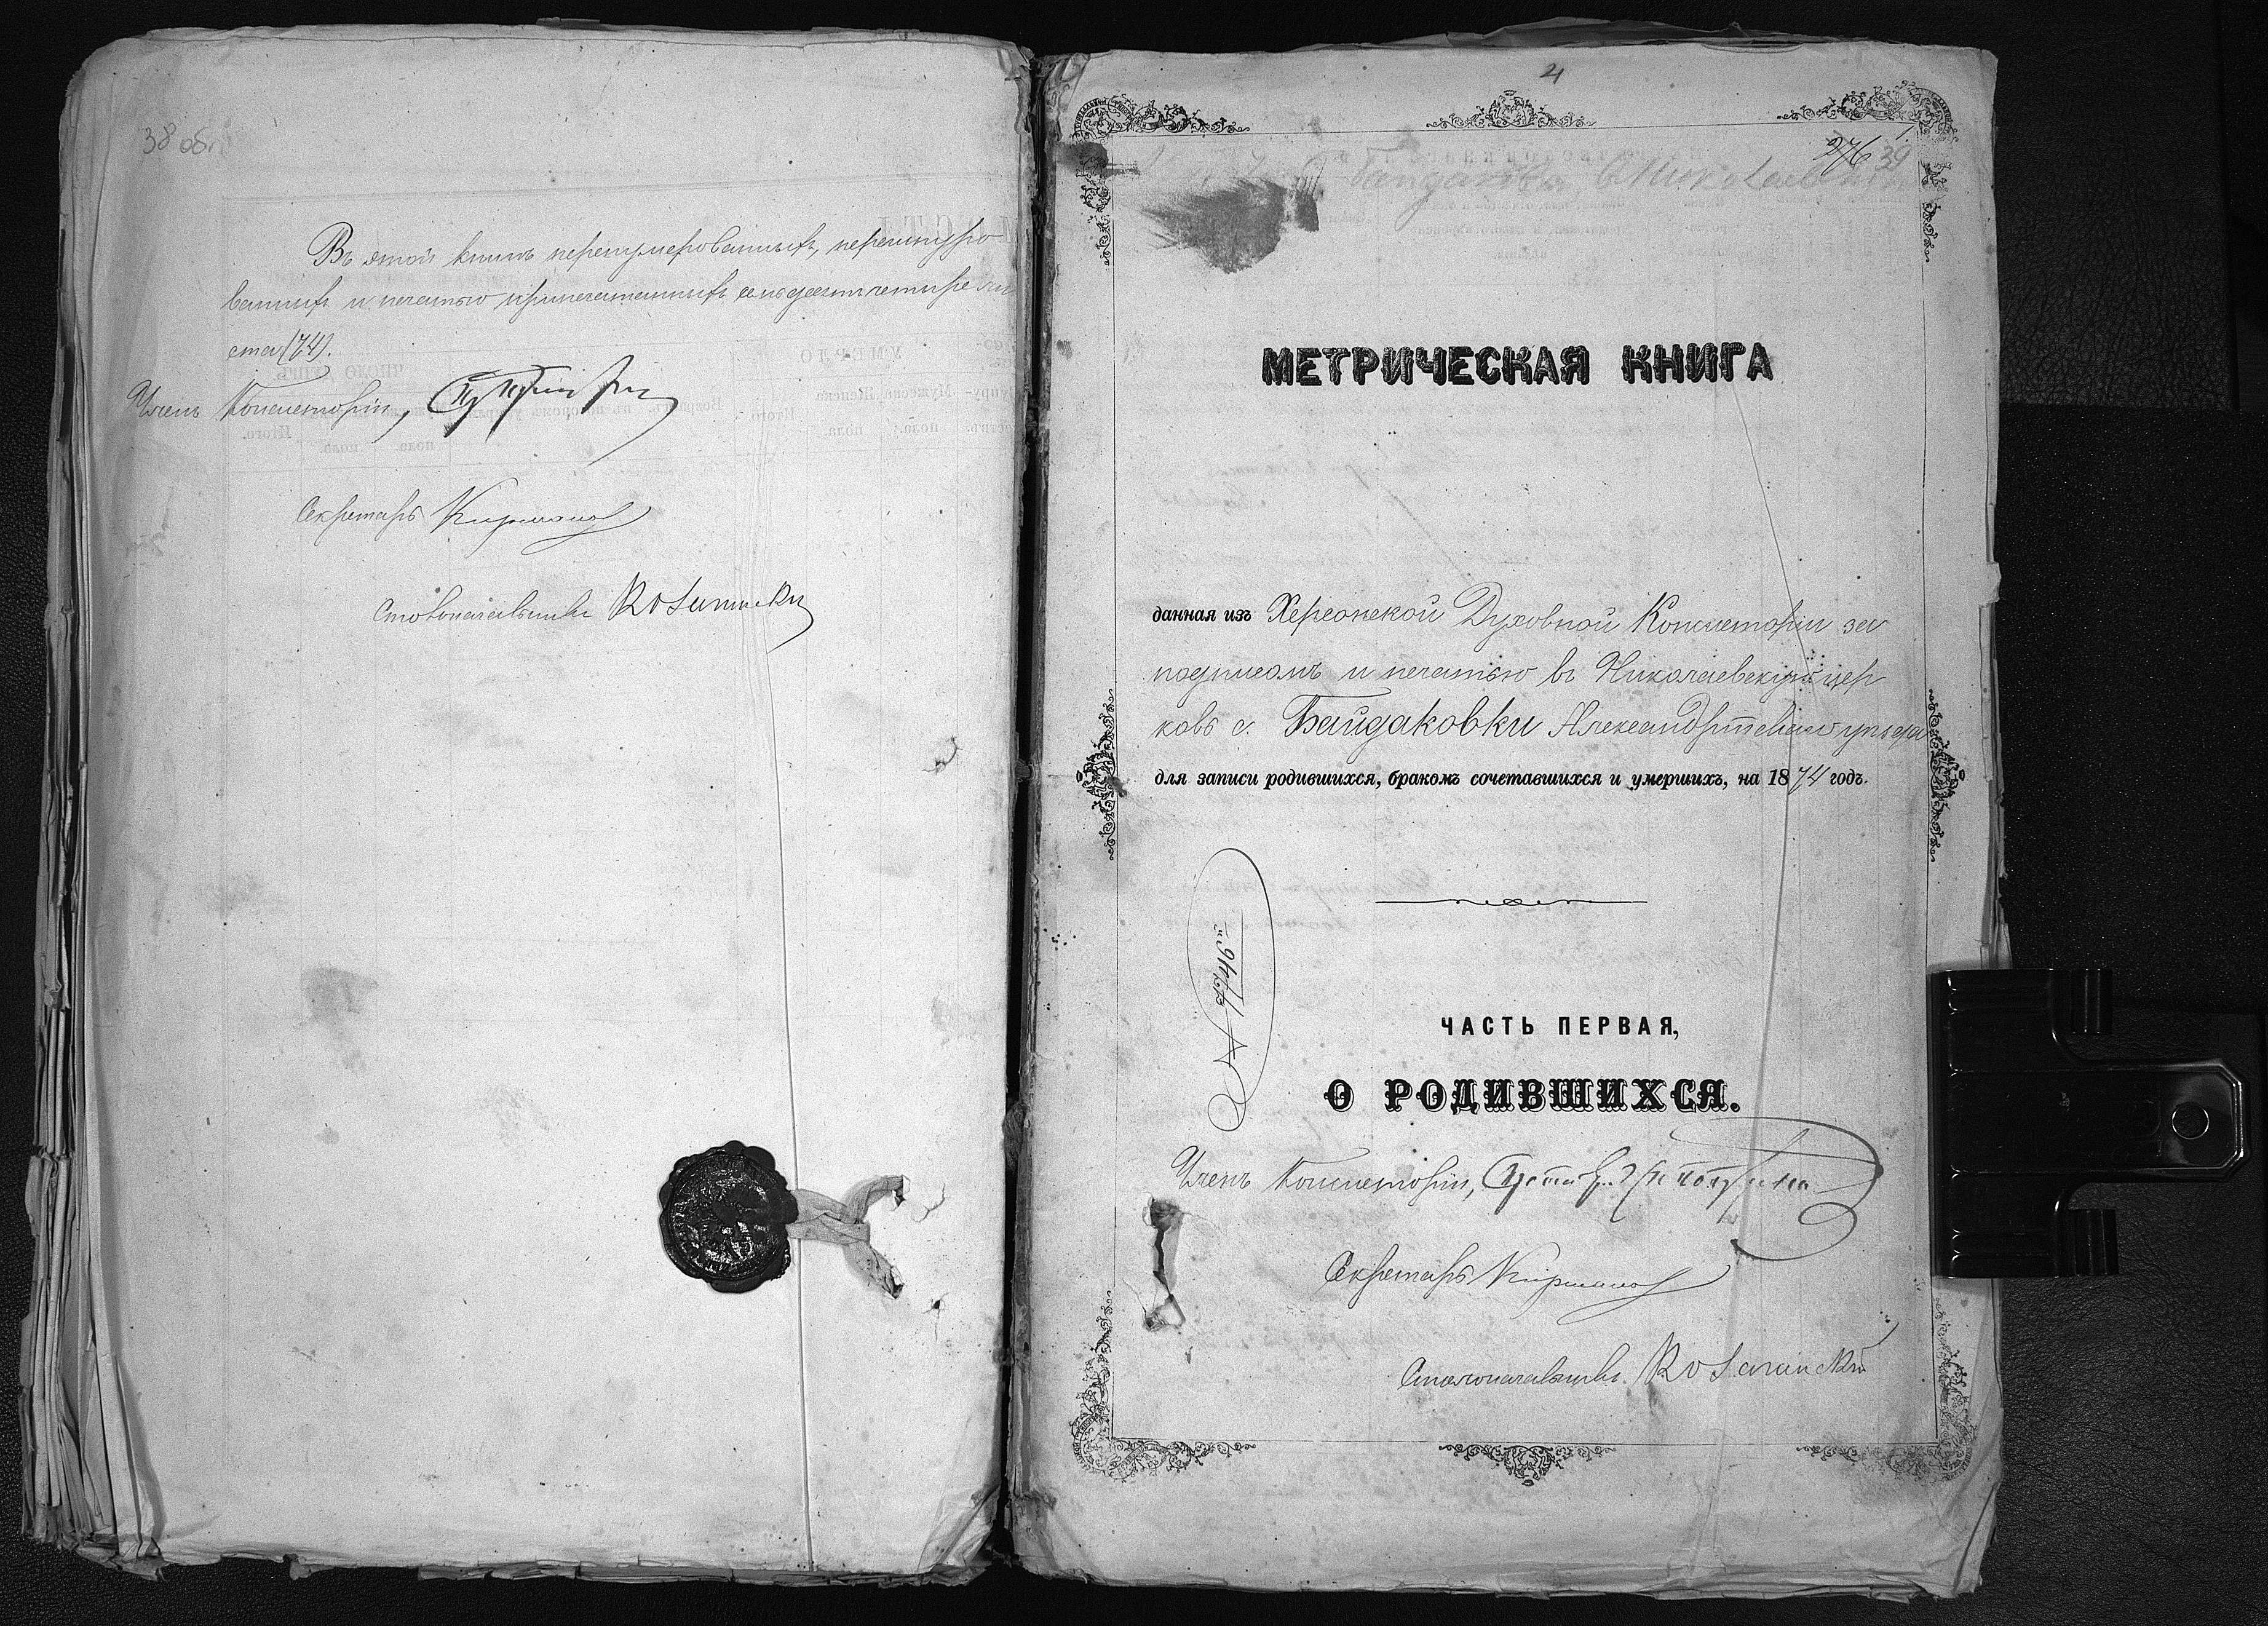 38 об.
Въ этой книгѣ перенумерованныхъ, перешнуро
ванныхъ и печатью припечатанныхъ семьдесятъ четыре ли
ста (74).
Членъ Консисторіи,
Секретарь
Столоначальникъ
4
276 39
МЕТРИЧЕСКАЯ КНИГА
данная изъ Херсонской Духовной Консисторіи за
подписомъ и печатью въ Николаевскую цер
ковь с. Байдаковки Александрійскаго уѣзда
для записи родившихся, бракомъ сочетавшихся и умершихъ, на 1874 годъ.
ЧАСТЬ ПЕРВАЯ,
О РОДИВШИХСЯ.
Членъ Консисторіи,
Секретарь
Столоначальникъ